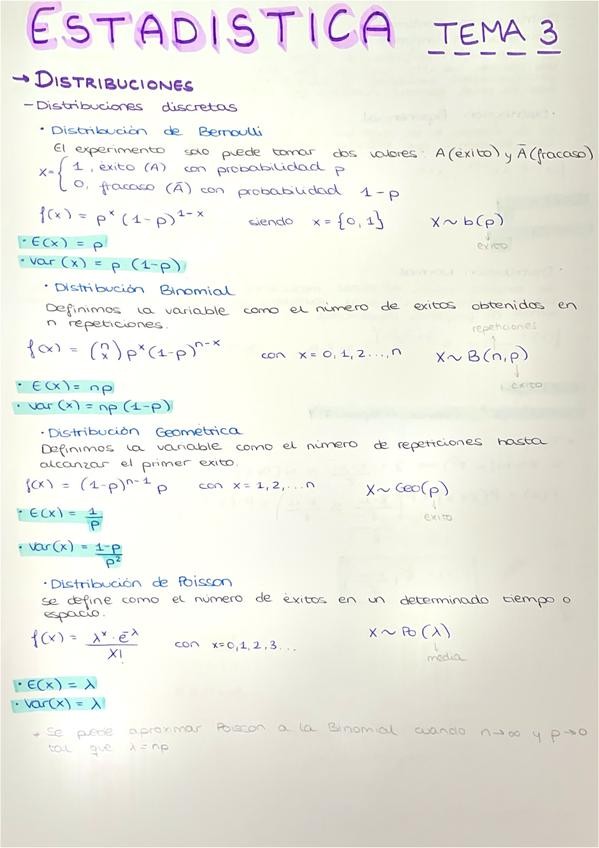 ESTADISTICA TEMA 3
→ DISTRIBUCIONES
- Distribuciones discretas
• Distribución de Bernoulli
El experimento solo puede tomar dos valores: A (éxito) y Ā (fracaso)
X = { 1, éxito (A) con probabilidad p
0, fracaso (Ā) con probabilidad 1-p
f(x) = pˣ (1-p)¹⁻ˣ siendo x = {0,1} X ~ b(p)
éxito
• E(x) = p
• var (x) = p (1-p)
• Distribución Binomial
Definimos la variable como el número de exitos obtenidos en
n repeticiones.
repeticiones
f(x) = (n x) pˣ (1-p)ⁿ⁻ˣ con x = 0, 1, 2 ..., n X ~ B(n,p)
éxito
• E(x) = np
• var (x) = np (1-p)
• Distribución Geométrica
Definimos la variable como el número de repeticiones hasta
alcanzar el primer exito.
f(x) = (1-p)ⁿ⁻¹ p con x = 1, 2, ... n X ~ Geo(p)
éxito
• E(x) = 1/p
• var (x) = 1-p/p²
• Distribución de Poisson
se define como el numero de éxitos en un determinado tiempo o
espacio.
f(x) = λˣ · e⁻λ / x! con x=0,1,2,3... X ~ Po (λ)
media
• E(x) = λ
• var(x) = λ
* Se puede aproximar Poisson a la Binomial cuando n→∞ y p→0
tal que λ = np